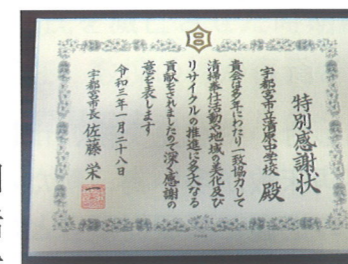 特別感謝状
宇都宮市立清原中学校 殿
貴会は多年にわたり一致協力して
清掃奉仕活動や地域の美化及び
リサイクルの推進に多大なる
貢献をされましたので深く感謝の
意を表します
令和三年一月二十八日
宇都宮市長 佐藤栄一